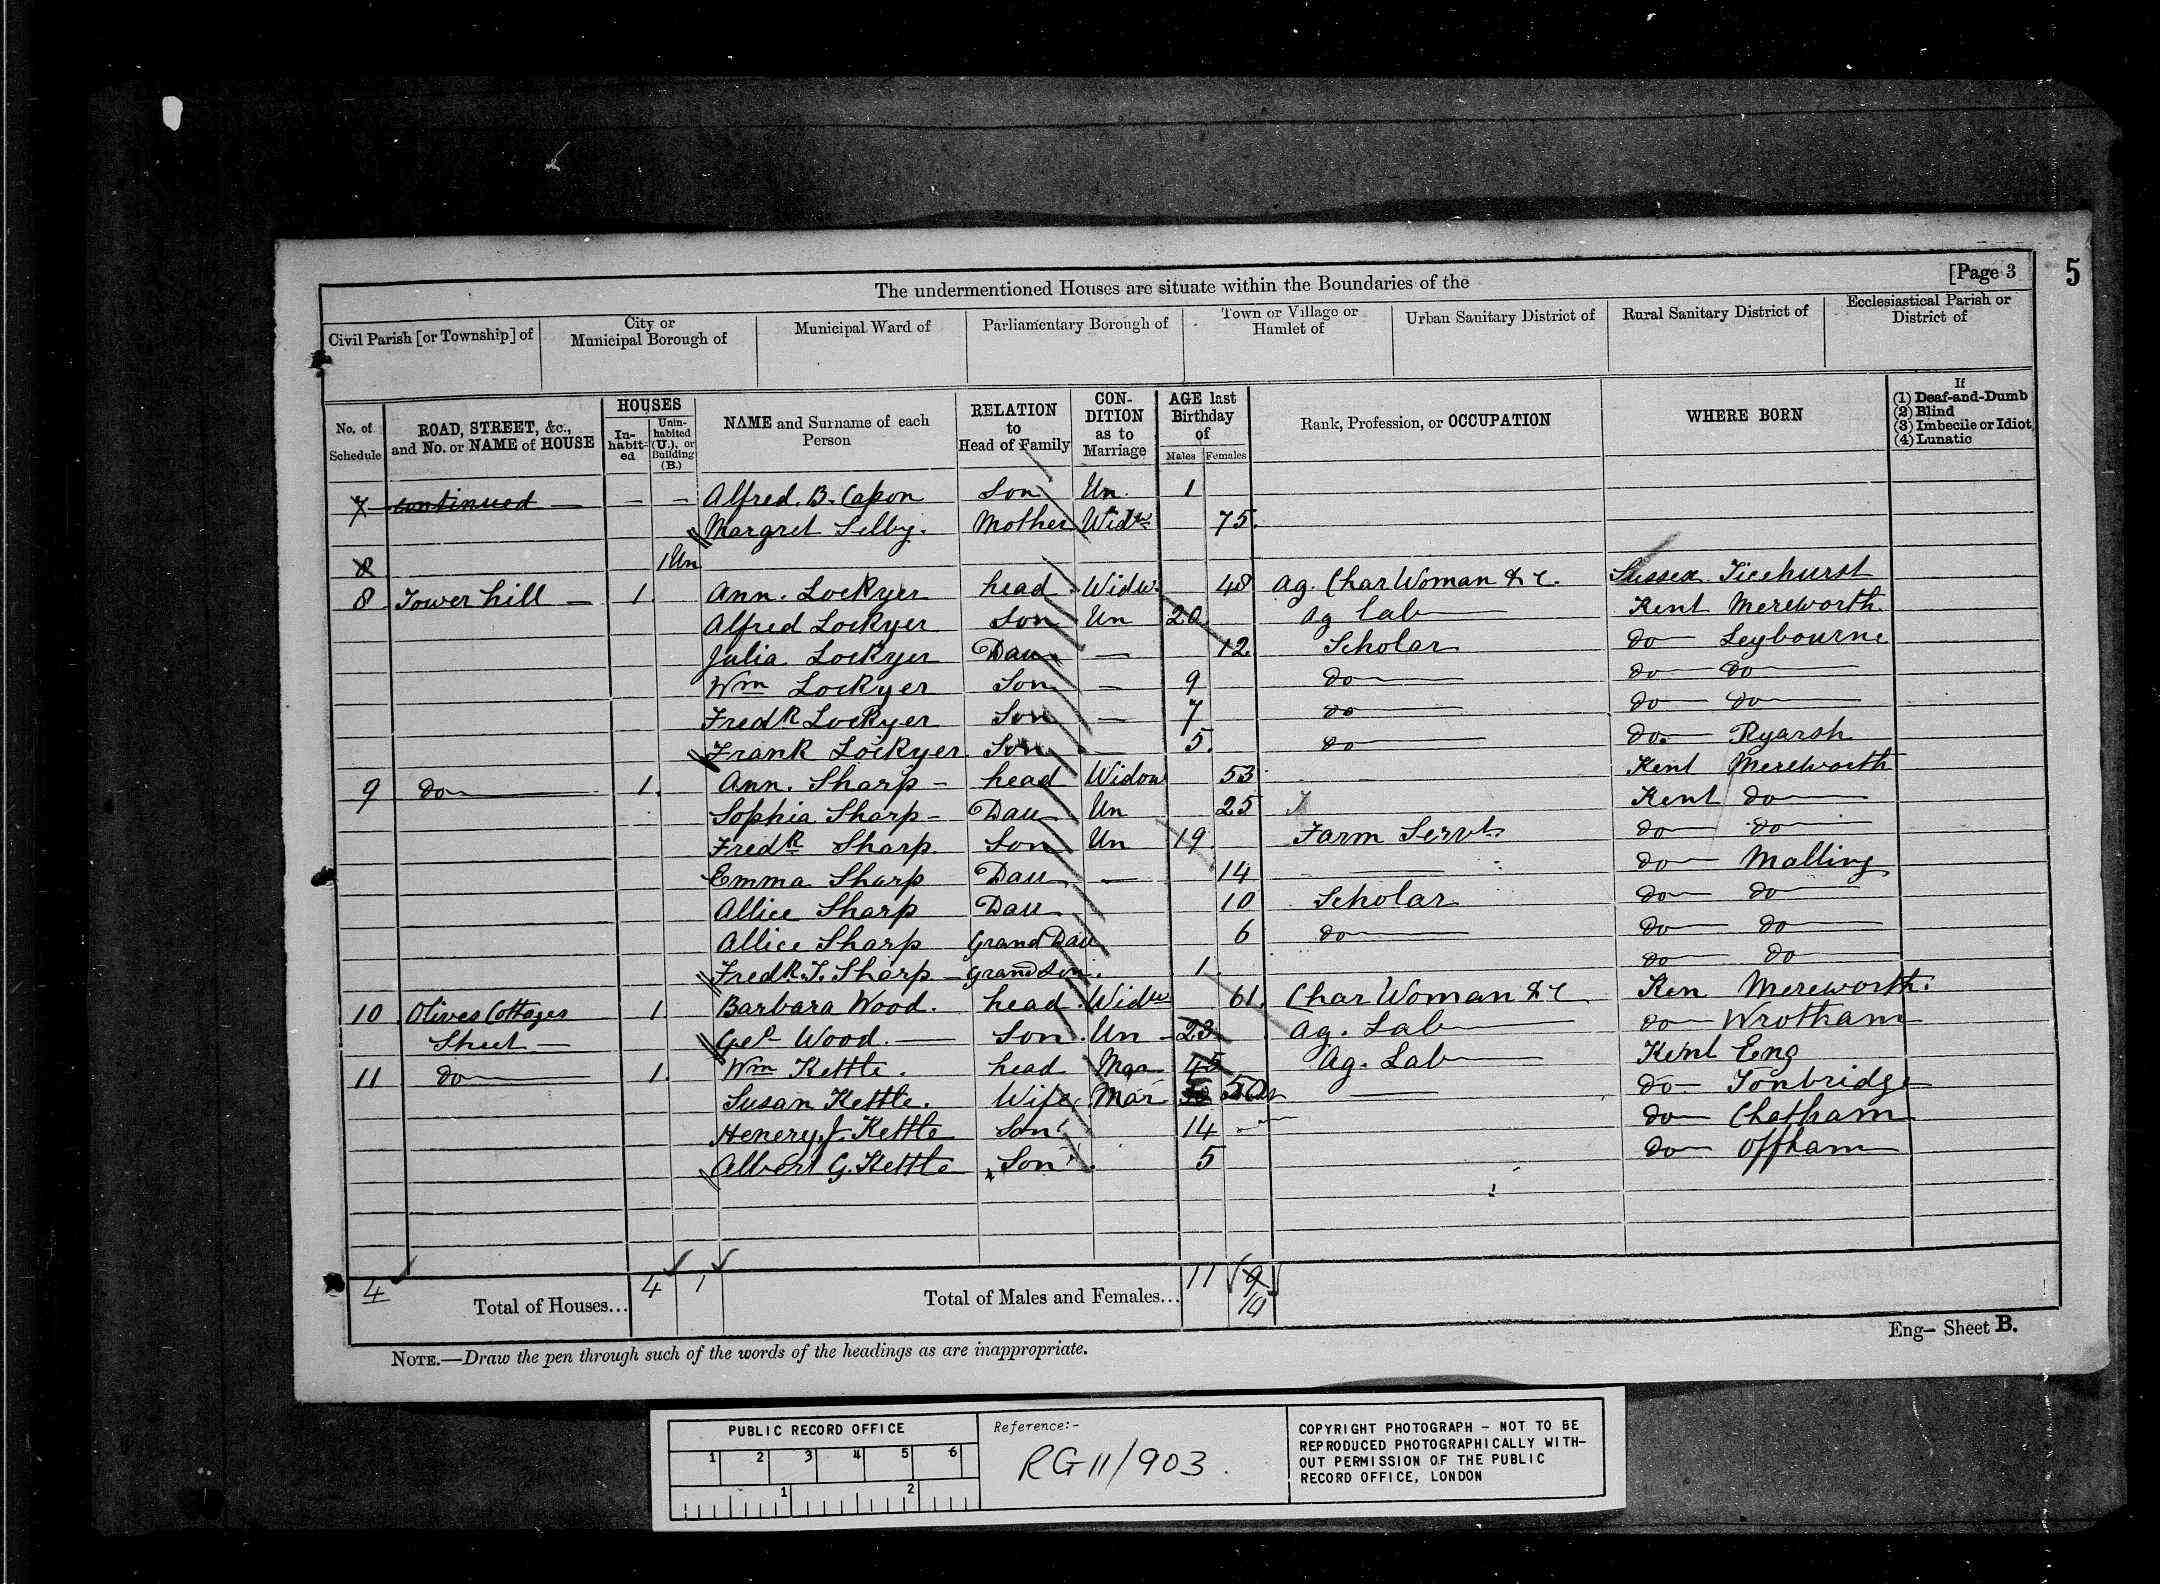 The undermentioned Houses are situate within the Boundaries of the
[Page 3
5
Civil Parish [or Township] of
City or Municipal Borough of
Municipal Ward of
Parliamentary Borough of
Town or Village or Hamlet of
Urban Sanitary District of
Rural Sanitary District of
Ecclesiastical Parish or District of
No. of Schedule
ROAD, STREET, &c., and No. or NAME of HOUSE
HOUSES
In-habit-ed
Unin-habited (U.), or Building (B.)
NAME and Surname of each Person
RELATION to Head of Family
CON-DITION as to Marriage
AGE last Birthday of
Males Females
Rank, Profession, or OCCUPATION
WHERE BORN
If (1) Deaf-and-Dumb (2) Blind (3) Imbecile or Idiot (4) Lunatic
7 continued — — — Alfred. B. Capon Son Un. 1
Margret Selby. Mother Widw 75.
8 1 Un
8 Tower hill — 1 Ann. Lockyer head Widw. 48 Ag. Char Woman &c. Sussex Ticehurst
Alfred Lockyer Son Un 20 Ag Lab Kent Mereworth
Julia Lockyer Dau — 12 Scholar do Leybourne
Wm Lockyer Son — 9 do do do
Fredk Lockyer Son — 7 do do do
Frank Lockyer. Son — 5. do do. Ryarsh
9 do 1. Ann. Sharp - head Widow 53 Kent Mereworth
Sophia Sharp - Dau Un 25 Kent do
Fredk Sharp. Son Un 19 Farm Servt do do
Emma Sharp Dau — 14 — do Malling
Allice Sharp Dau 10 Scholar do do
Allice Sharp Grand Dau 6 do do do
Fredk. T. Sharp - Grand Son. 1. do do
10 Olives Cottages 1 Barbara Wood. head. Widw 61. Char Woman &c Ken Mereworth.
Street — Geo Wood. — Son. Un 23 Ag. Lab do Wrotham
11 do 1. Wm Kettle. head Mar 45 Ag. Lab Kent Eng
Susan Kettle. Wife Mar 50 — do Tonbridge
Henery J. Kettle Son 14 do Chatham
Albert G. Kettle Son 5 do Offham
4 Total of Houses... 4 1 Total of Males and Females... 11 9 10
Eng— Sheet B.
NOTE.—Draw the pen through such of the words of the headings as are inappropriate.
PUBLIC RECORD OFFICE
1 2 3 4 5 6
1 2
Reference:-
RG 11/903.
COPYRIGHT PHOTOGRAPH - NOT TO BE
REPRODUCED PHOTOGRAPHICALLY WITH-
OUT PERMISSION OF THE PUBLIC
RECORD OFFICE, LONDON